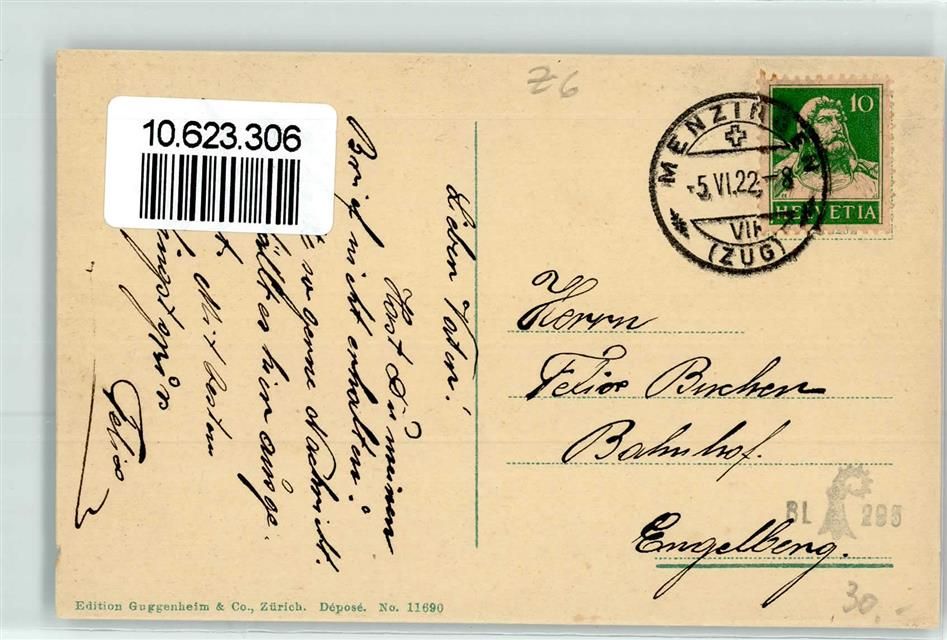 10.623.306
Z6
MENZINGEN
-5.VI.22.-8
VII
(ZUG)
10
HELVETIA
Lieber Vater!
Hast Du meinen
Brief nicht erhalten?
so gerne Nachricht.
gefällt es hier
Mit bestem
Felix
Herrn
Felix Bucher
Bahnhof.
Engelberg.
BL 295
30.-
Edition Guggenheim & Co., Zürich. Déposé. No. 11690